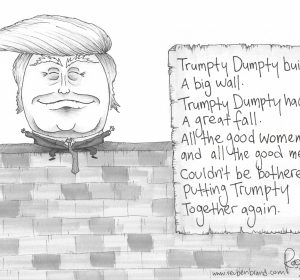 Trumpty Dumpty bui
A big wall.
Trumpty Dumpty ha
A great fall.
All the good women
and all the good me
Couldn't be bothere
Putting Trumpty
Together again.